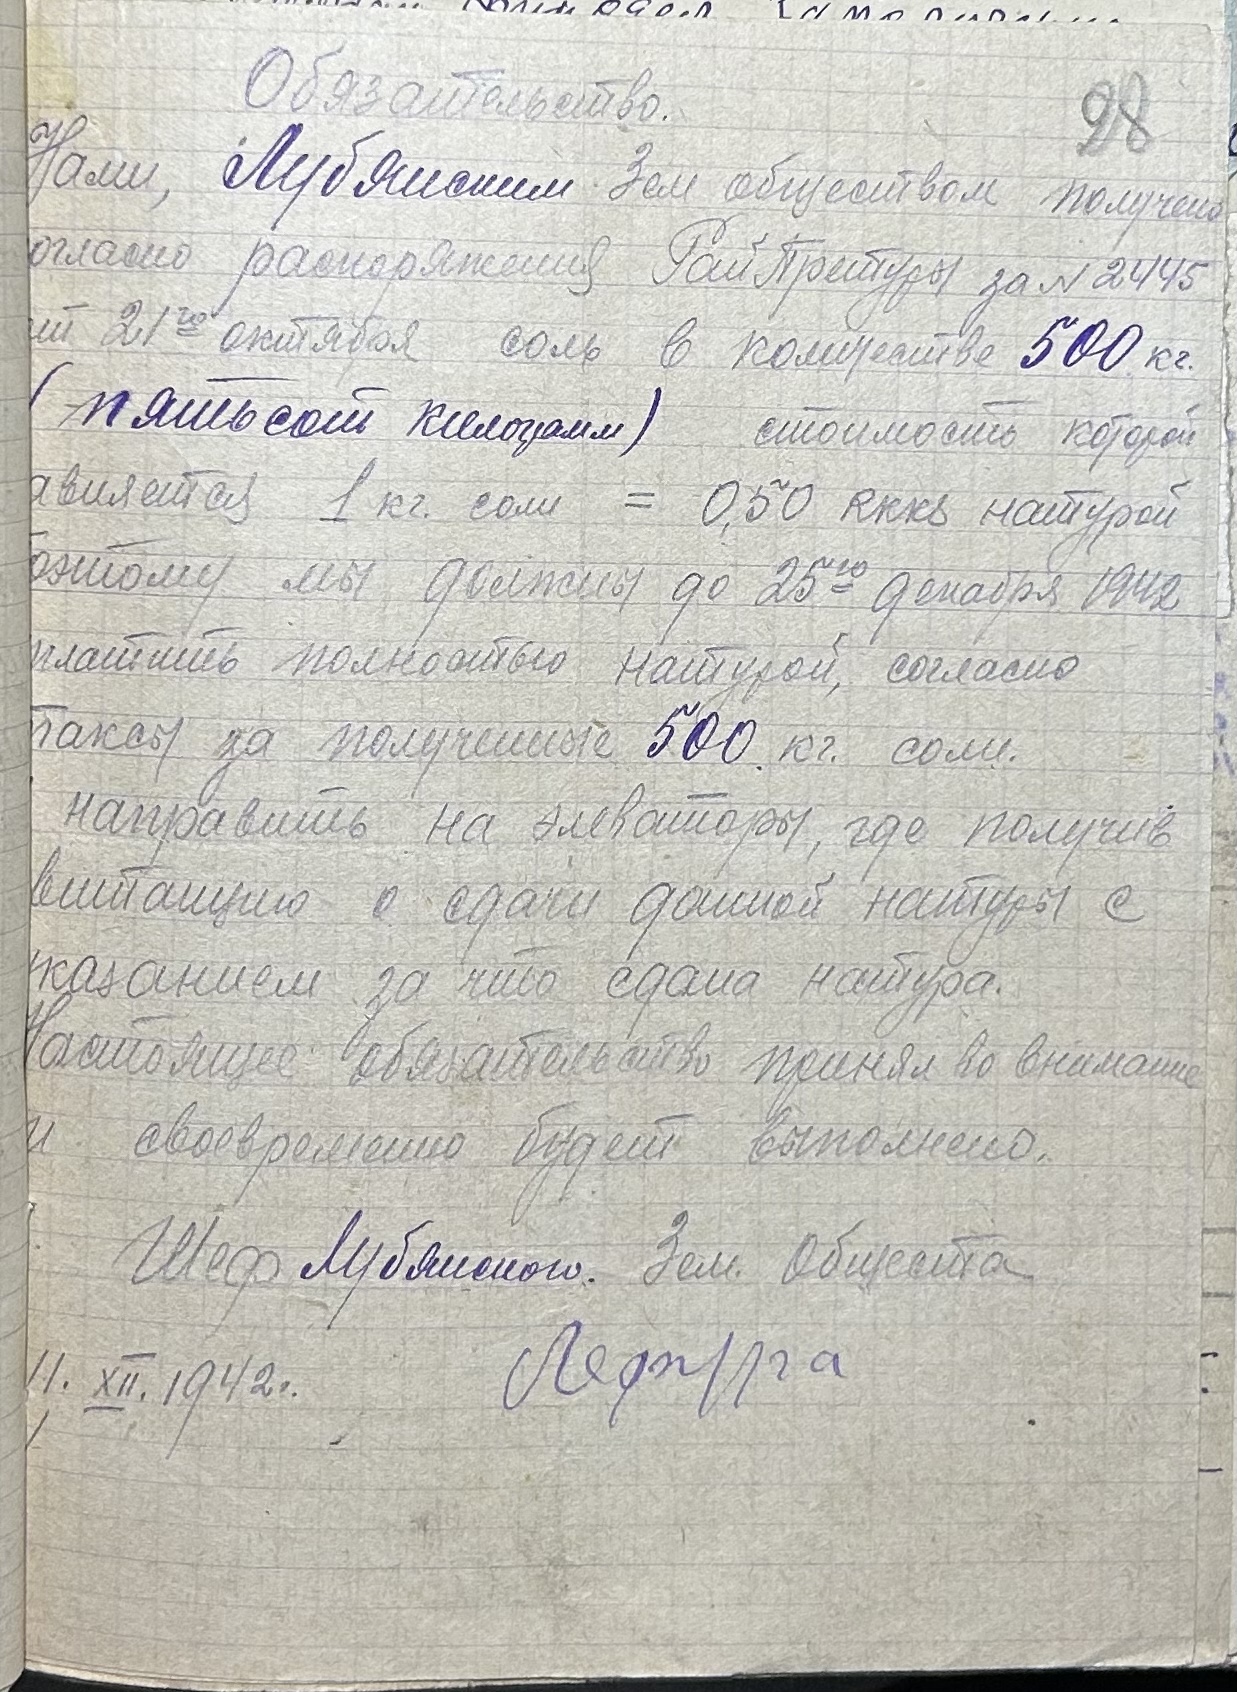 28
Обязательство.
Нами, Лубянским Зем обществом получено
огласно распоряжения РайПретуры за № 2445
от 21го октября соль в количестве 500 кг.
(пятьсот килограмм) стоимость которой
авляется 1 кг. соли = 0,50 RKKS натурой
оэтому мы должны до 25го декабря 1942
платить полностью натурой, согласно
таксы за полученные 500 кг. соли.
направить на элеваторы, где получив
витанцию о сдачи данной натуры с
казанием за что сдана натура.
Настоящее обязательство принял во внимание
и своевременно будет выполнено.
Шеф Лубянского. Зем. Общества
11. XII. 1942г.